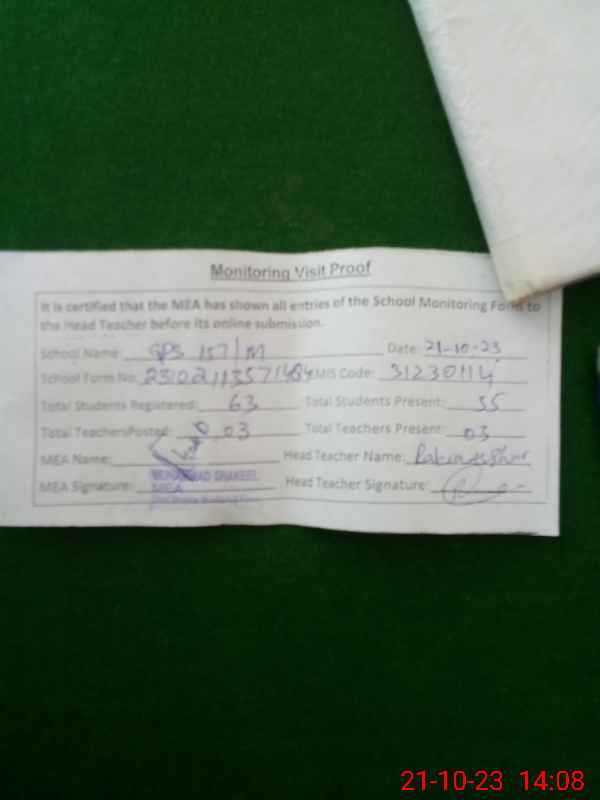 Monitoring Visit Proof
It is certified that the MEA has shown all entries of the School Monitoring Form to
the Head Teacher before its online submission.
School Name: GPS 157/M Date: 21-10-23
School Form No: EMIS Code: 31230114
Total Students Registered: 63 Total Students Present: 55
Total TeachersPosted: 03 Total Teachers Present: 03
MEA Name: Head Teacher Name:
MUHAMMAD SHAKEEL
MEA Signature: MEA Head Teacher Signature:
21-10-23 14:08